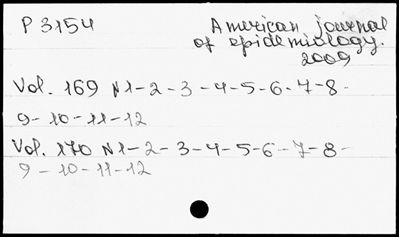 P 3154
American journal
of epidemiology.
2009
Vol. 169 N1-2-3-4-5-6-7-8-
9-10-11-12
Vol. 170 N1-2-3-4-5-6-7-8-
9-10-11-12